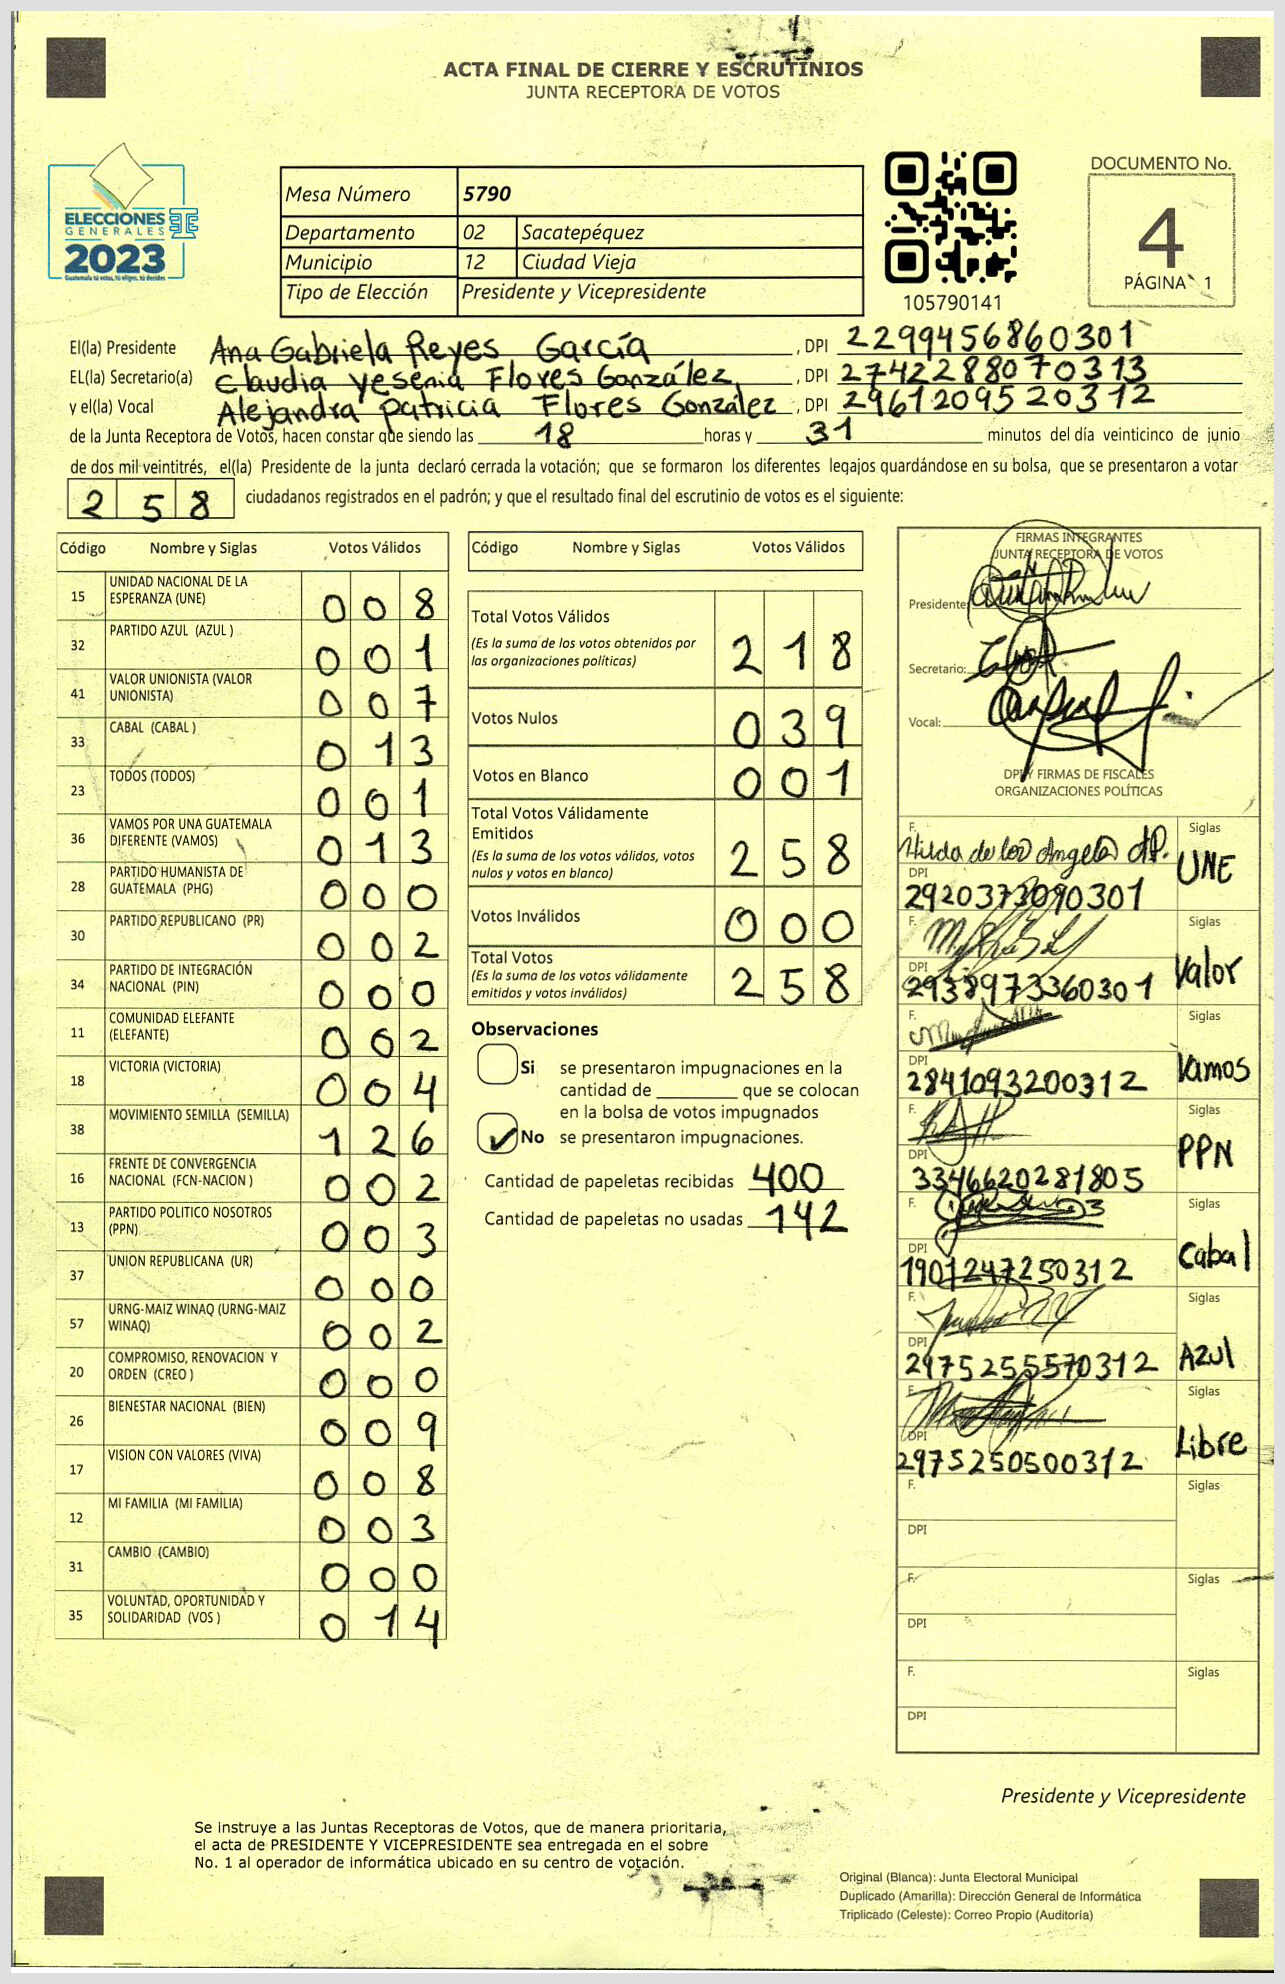 ACTA FINAL DE CIERRE Y ESCRUTINIOS
JUNTA RECEPTORA DE VOTOS
ELECCIONES
GENERALES
2023
Guatemala tú votas, tú eliges, tú decides
Mesa Número 5790
Departamento 02 Sacatepéquez
Municipio 12 Ciudad Vieja
Tipo de Elección Presidente y Vicepresidente
105790141
DOCUMENTO No.
4
PÁGINA 1
El(la) Presidente Ana Gabriela Reyes García, DPI 2299456860301
EL(la) Secretario(a) Claudia Yesenia Flores González, DPI 2742288070313
y el(la) Vocal Alejandra Patricia Flores González, DPI 2961209520312
de la Junta Receptora de Votos, hacen constar que siendo las 18 horas y 31 minutos del día veinticinco de junio
de dos mil veintitrés, el(la) Presidente de la junta declaró cerrada la votación; que se formaron los diferentes legajos guardándose en su bolsa, que se presentaron a votar
258 ciudadanos registrados en el padrón; y que el resultado final del escrutinio de votos es el siguiente:
Código Nombre y Siglas Votos Válidos
15 UNIDAD NACIONAL DE LA ESPERANZA (UNE) 008
32 PARTIDO AZUL (AZUL ) 001
41 VALOR UNIONISTA (VALOR UNIONISTA) 007
33 CABAL (CABAL ) 013
23 TODOS (TODOS) 001
36 VAMOS POR UNA GUATEMALA DIFERENTE (VAMOS) 013
28 PARTIDO HUMANISTA DE GUATEMALA (PHG) 000
30 PARTIDO REPUBLICANO (PR) 002
34 PARTIDO DE INTEGRACIÓN NACIONAL (PIN) 000
11 COMUNIDAD ELEFANTE (ELEFANTE) 002
18 VICTORIA (VICTORIA) 004
38 MOVIMIENTO SEMILLA (SEMILLA) 126
16 FRENTE DE CONVERGENCIA NACIONAL (FCN-NACION ) 002
13 PARTIDO POLITICO NOSOTROS (PPN) 003
37 UNION REPUBLICANA (UR) 000
57 URNG-MAIZ WINAQ (URNG-MAIZ WINAQ) 002
20 COMPROMISO, RENOVACION Y ORDEN (CREO ) 000
26 BIENESTAR NACIONAL (BIEN) 009
17 VISION CON VALORES (VIVA) 008
12 MI FAMILIA (MI FAMILIA) 003
31 CAMBIO (CAMBIO) 000
35 VOLUNTAD, OPORTUNIDAD Y SOLIDARIDAD (VOS ) 014
Código Nombre y Siglas Votos Válidos
Total Votos Válidos 218
(Es la suma de los votos obtenidos por
las organizaciones políticas)
Votos Nulos 039
Votos en Blanco 001
Total Votos Válidamente
Emitidos 258
(Es la suma de los votos válidos, votos
nulos y votos en blanco)
Votos Inválidos 000
Total Votos 258
(Es la suma de los votos válidamente
emitidos y votos inválidos)
Observaciones
Si se presentaron impugnaciones en la
cantidad de que se colocan
en la bolsa de votos impugnados
No se presentaron impugnaciones.
Cantidad de papeletas recibidas 400
Cantidad de papeletas no usadas 142
FIRMAS INTEGRANTES
JUNTA RECEPTORA DE VOTOS
Presidente:
Secretario:
Vocal:
DPI Y FIRMAS DE FISCALES
ORGANIZACIONES POLÍTICAS
F. Hilda de los Angeles Siglas
DPI 2920373090301 UNE
F. Siglas
DPI 2938973360301 Valor
F. Siglas
DPI 2841093200312 Vamos
F. Siglas
DPI 3346620281805 PPN
F. Siglas
DPI 1901247250312 Cabal
F. Siglas
DPI 2975255570312 Azul
F. Siglas
DPI 2975250500312 Libre
F. Siglas
DPI
F. Siglas
DPI
F. Siglas
DPI
Presidente y Vicepresidente
Se instruye a las Juntas Receptoras de Votos, que de manera prioritaria,
el acta de PRESIDENTE Y VICEPRESIDENTE sea entregada en el sobre
No. 1 al operador de informática ubicado en su centro de votación.
Original (Blanca): Junta Electoral Municipal
Duplicado (Amarilla): Dirección General de Informática
Triplicado (Celeste): Correo Propio (Auditoría)